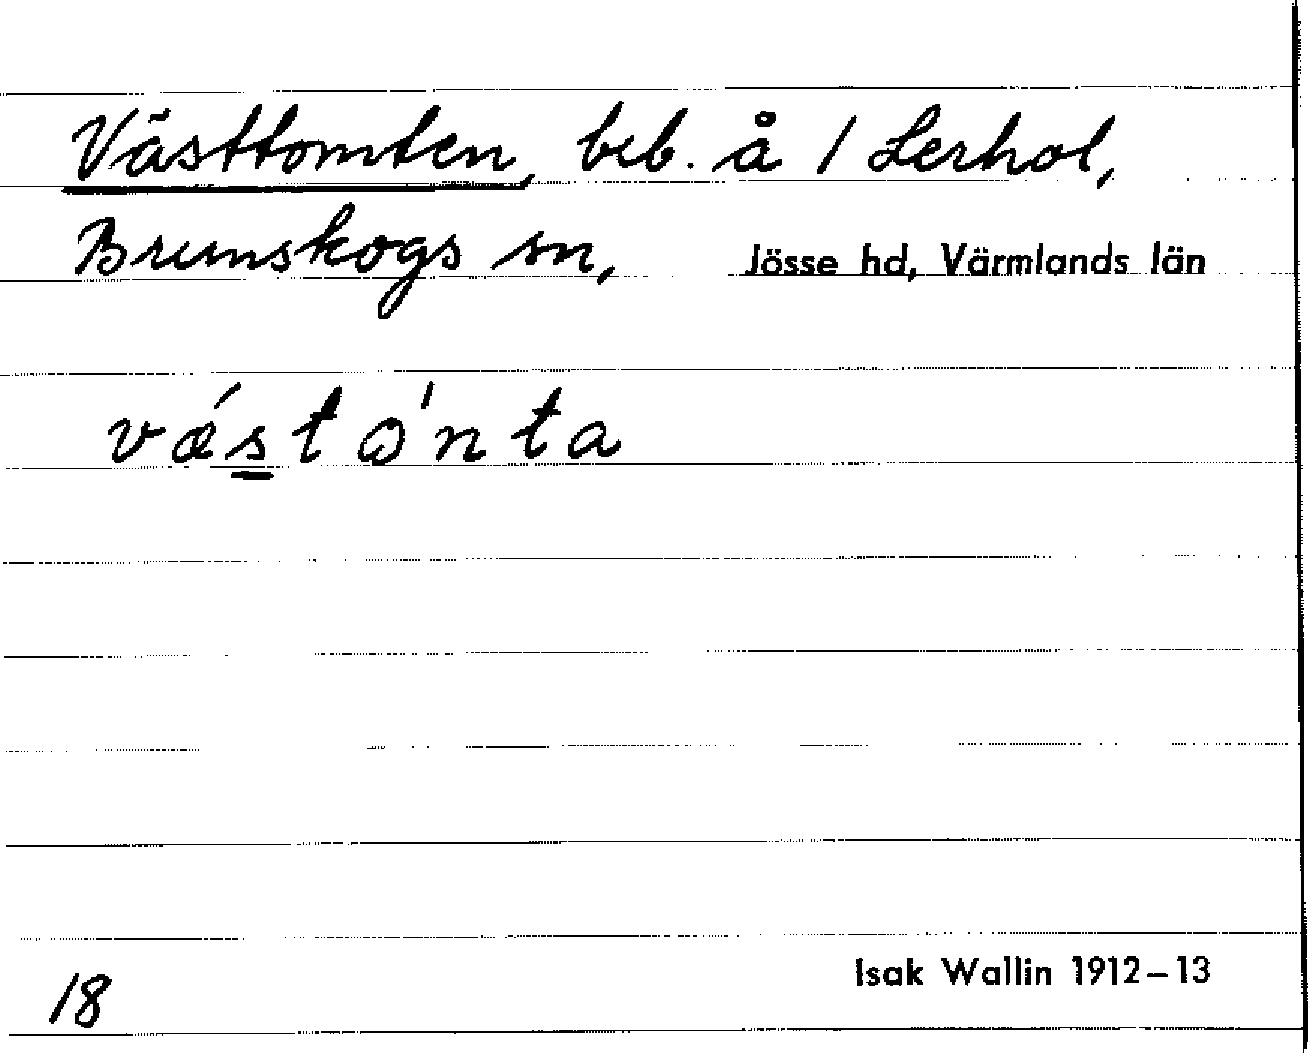 Västtomten, beb. å 1 Lerhol,
Brunskogs sn, Jösse hd, Värmlands län
væ´s̲tὸnta
Isak Wallin 1912–13
18